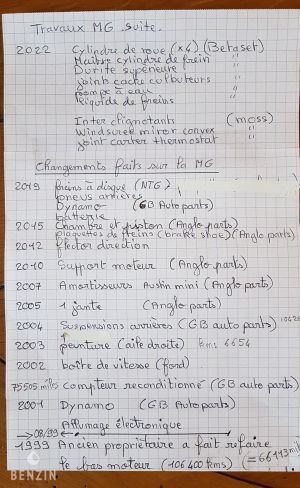 Travaux MG suite.
2022 Cylindre de roue (x4) (Betaset)
Maitre cylindre de frein "
Durite superieure "
joints cache culbuteurs "
pompe à eau "
liquide de freins "
Inter clignotants (moss)
Windscreen mirer convex "
joint carter thermostat "
Changements faits sur la MG
2019 freins à disque (NTG)
pneus arrières
Dynamo (GB Autoparts)
batterie
2015 Chambre et piston (Angloparts)
plaquettes de freins (brake shoe) (Angloparts)
2012 flector direction
2010 Support moteur (Anglo parts)
2007 Amortisseurs Austin mini (Anglo parts)
2005 1 jante (Anglo parts)
2004 Suspensions arrières (GB auto parts)
2003 peinture (aile droite) kms 6654
2002 boîte de vitesse (ford)
75505 miles Compteur reconditionné (GB auto parts)
2001 Dynamo (GB Autoparts)
Allumage électronique
08/99
1999 Ancien propriétaire a fait refaire
le bas moteur (106400 kms) (=66113 miles)
BENZIN